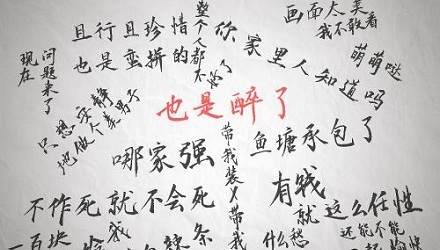 画面太美
我不敢看
且行且珍惜
也是蛮拼的
整个人都不好了
你家里人知道吗
萌萌哒
现在
问题来了
只想安静
地做个美男子
也是醉了
哪家强
带我装X带我
鱼塘承包了
不作死就不会死
有钱
就这么任性
什么
还能不能
一百块
我
条